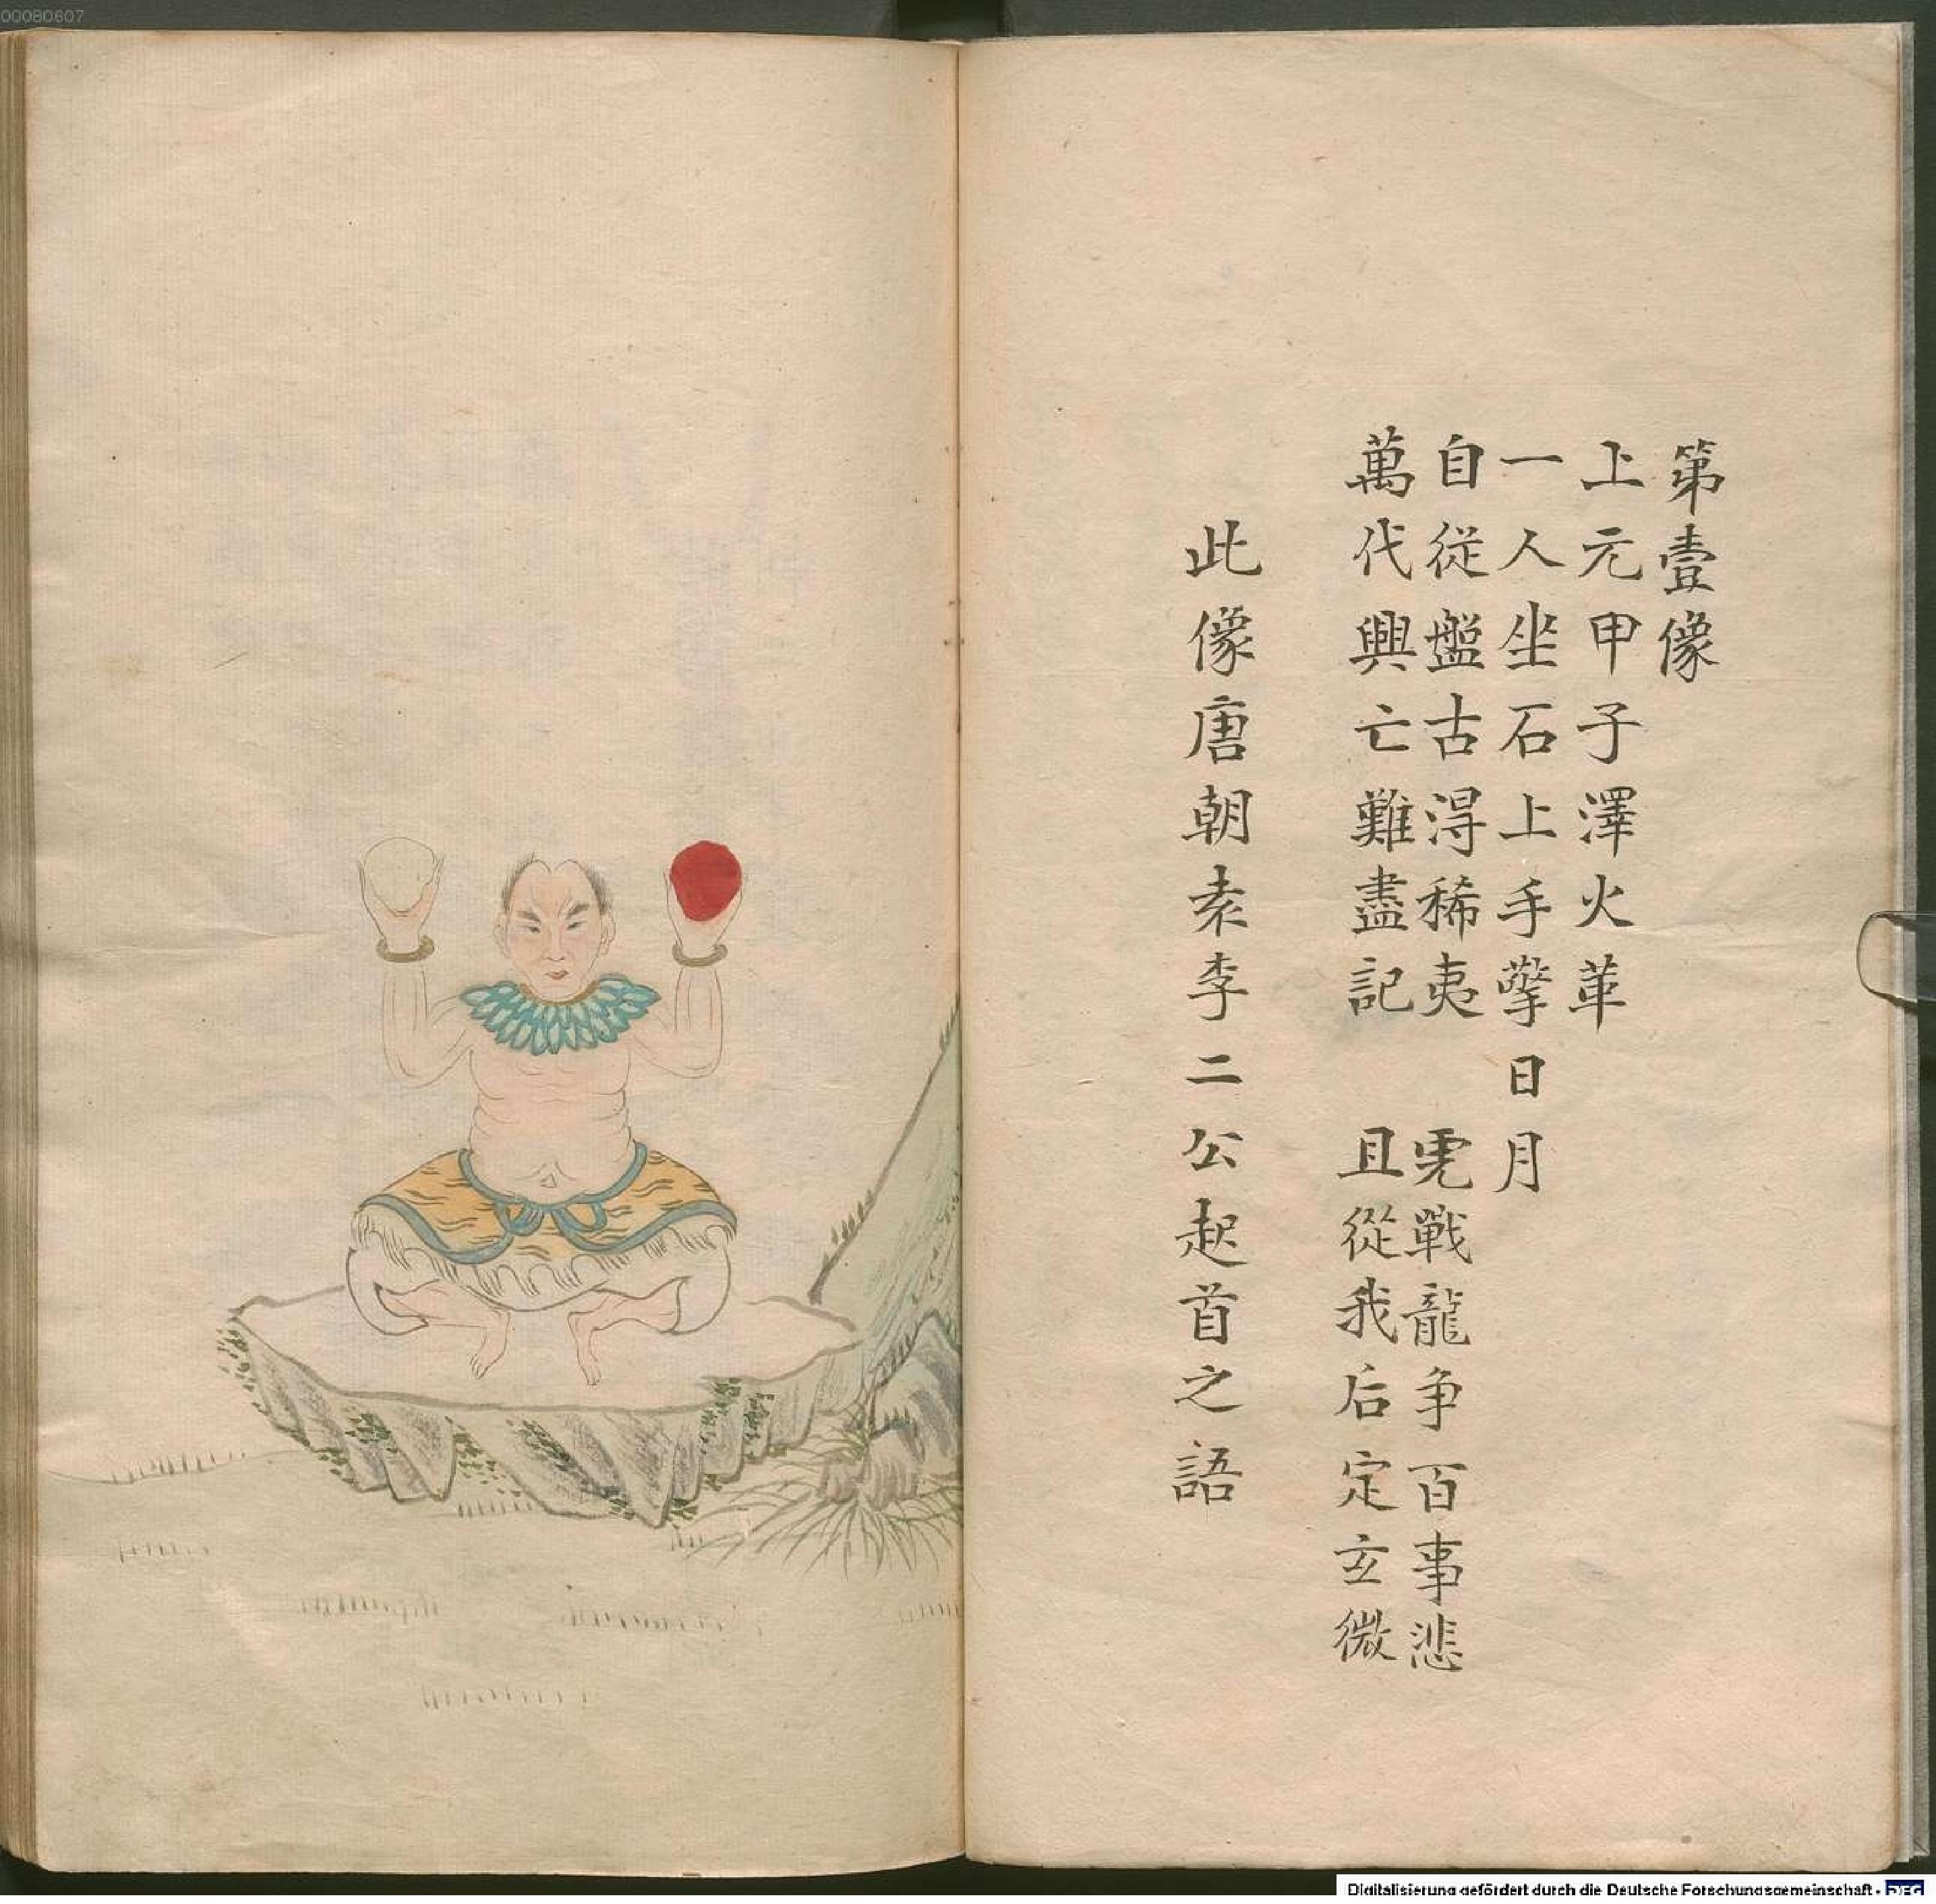 00080607
第壹像
上元甲子澤火革
一人坐石上手擎日月
自從盤古得稀夷　虎戰龍争百事悲
萬代興亡難盡記　且從我后定玄微
此像唐朝袁李二公起首之語
Digitalisierung gefördert durch die Deutsche Forschungsgemeinschaft - DFG